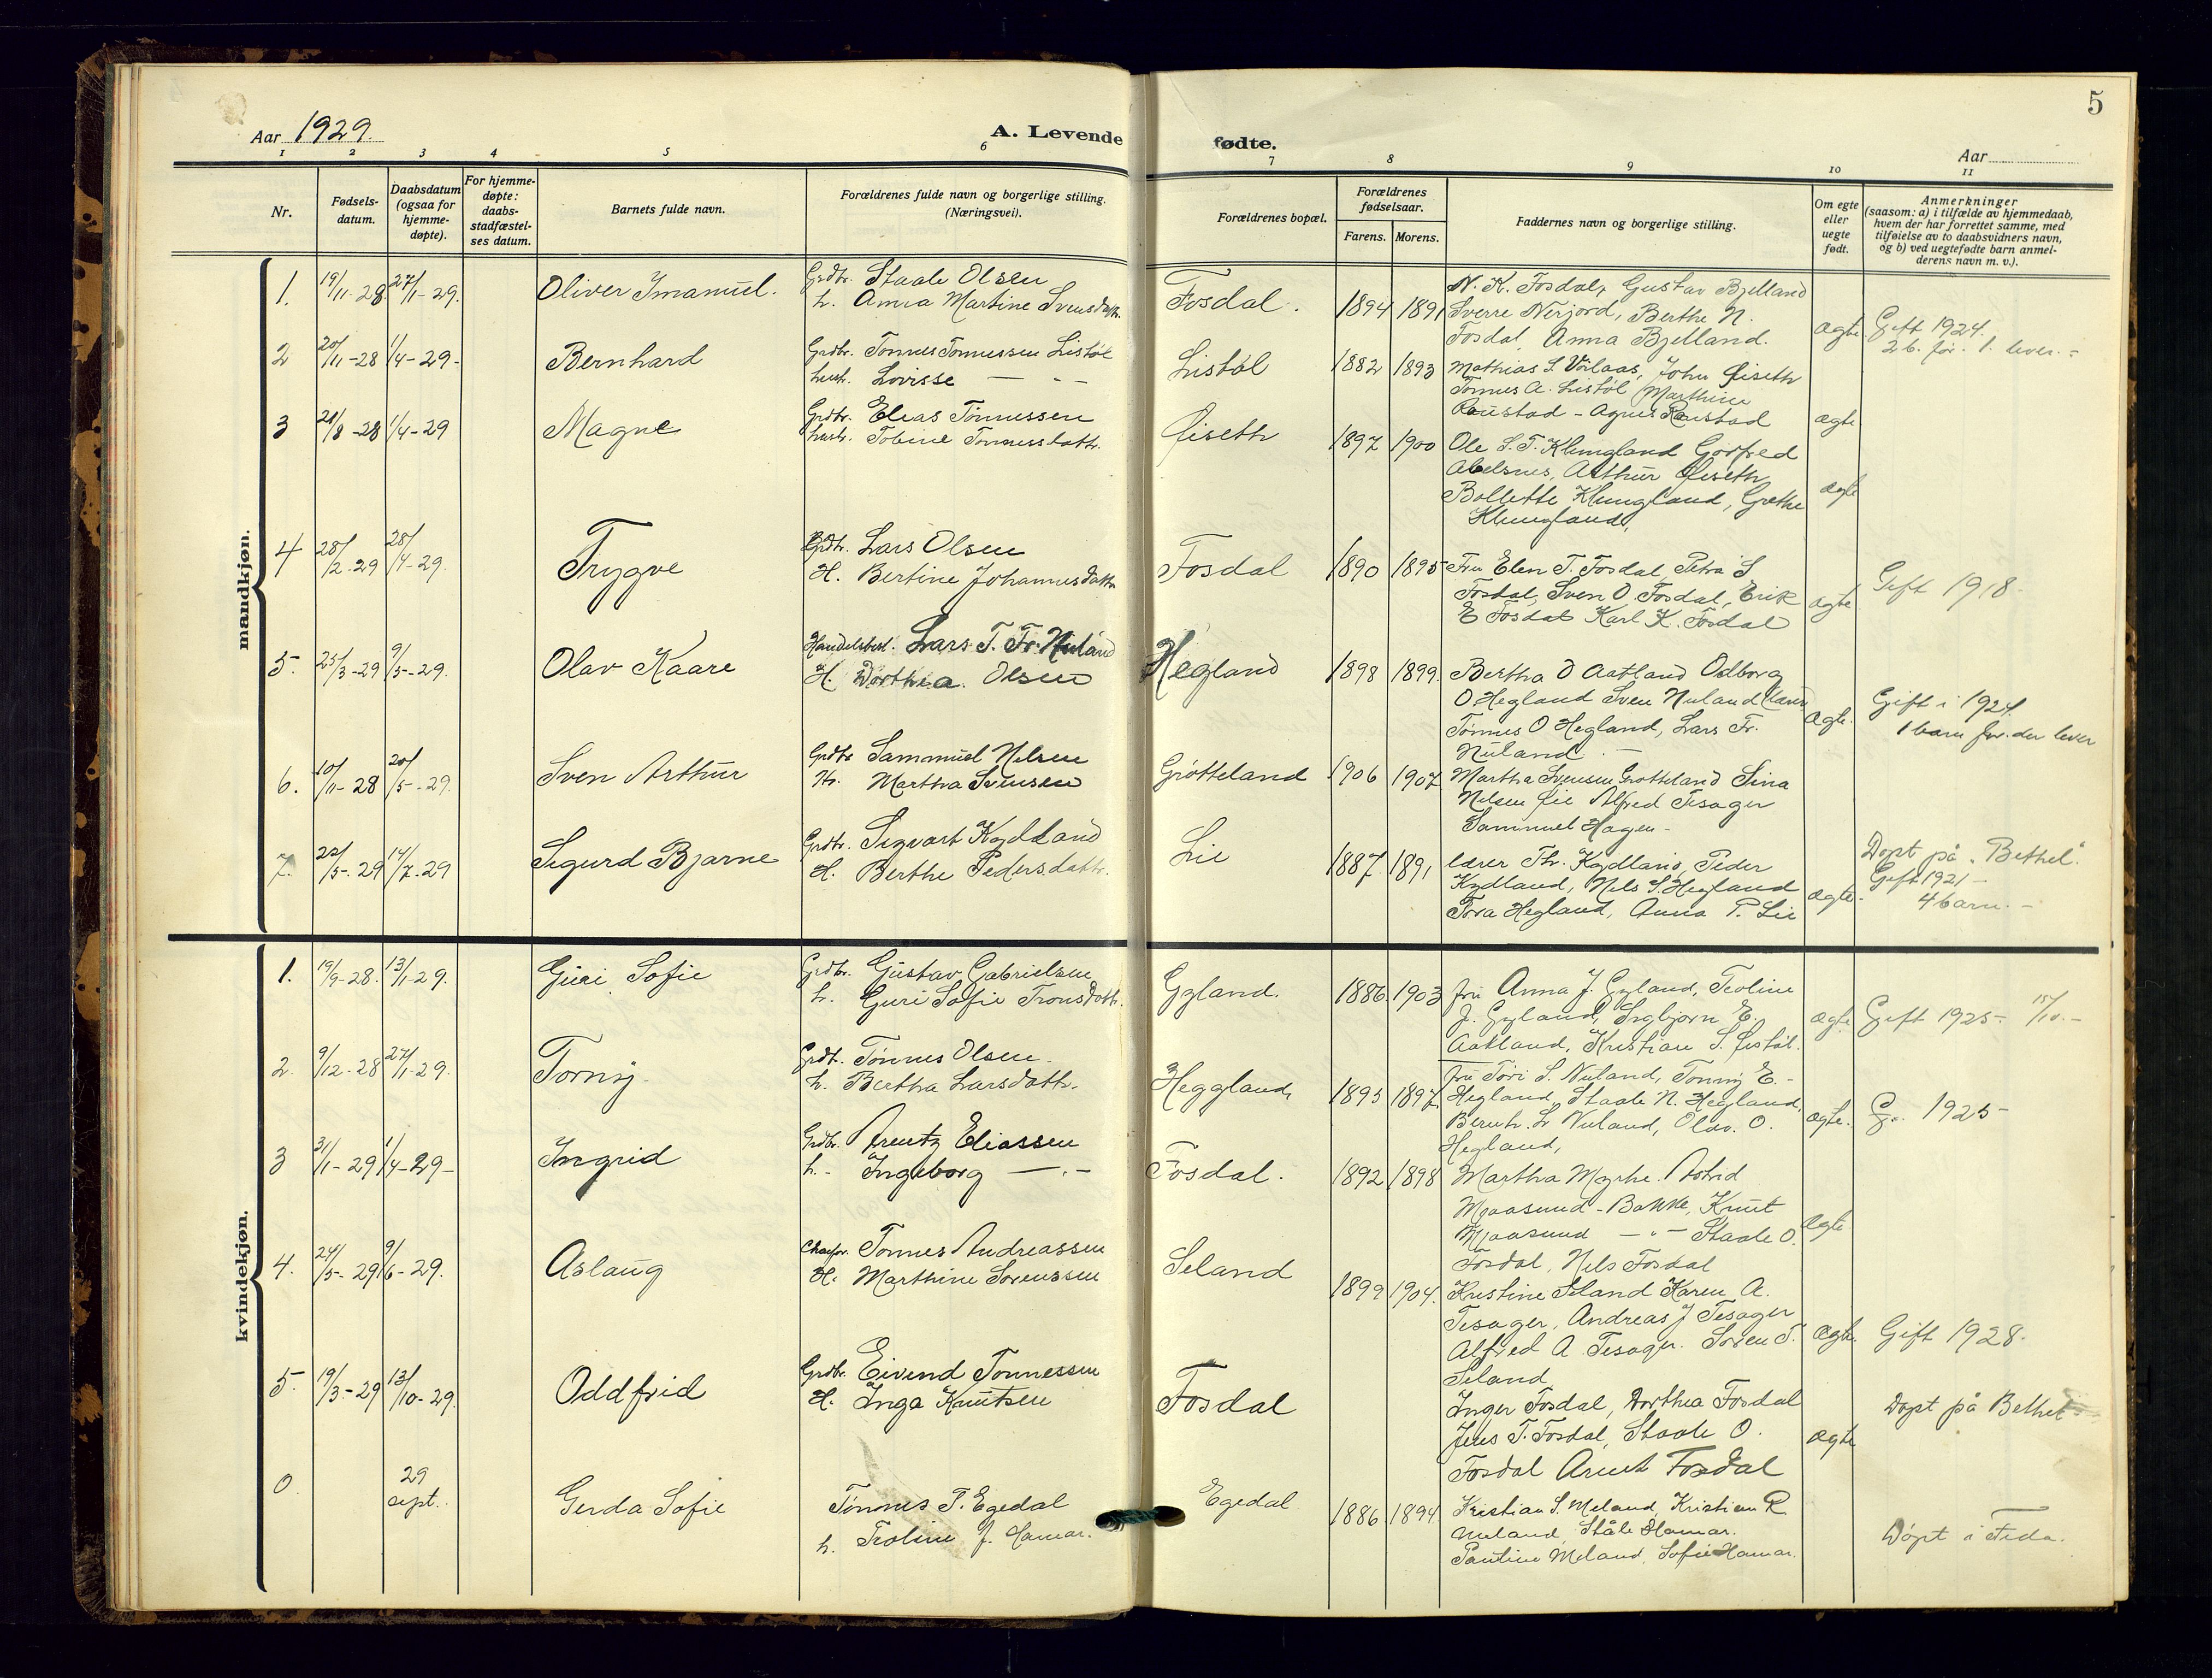 5
Aar 1929.
A. Levende
fødte.
Aar
1 2 3 4 5 6 7 8 9 10 11
Nr.
Fødsels-
datum.
Daabsdatum
(ogsaa for
hjemme-
døpte).
For hjemme-
døpte:
daabs-
stadfæstel-
ses datum.
Barnets fulde navn.
Forældrenes fulde navn og borgerlige stilling.
(Næringsvei).
Forældrenes bopæl.
Forældrenes
fødselsaar.
Farens. Morens.
Faddernes navn og borgerlige stilling.
Om egte
eller
uegte
født.
Anmerkninger
(saasom: a) i tilfælde av hjemmedaab,
hvem der har forrettet samme, med
tilføielse av to daabsvidners navn,
og b) ved uegtefødte barn anmel-
derens navn m. v.).
mandkjøn.
1. 19/11-28. 27/1-29. Oliver Imanuel.
Grdbr. Staale Olsen
h. Anna Martine Svensdattr.
Fosdal. 1894 1891
N. K. Fosdal, Gustav Bjelland
Sverre Nerjord, Berthe N.
Fosdal, Anna Bjelland.
ægte Gift 1924.
2 b. før. 1. lever.
2 20/11-28 1/4-29- Bernhard
Grdbr. Tønnes Tønnessen Listøl
hustr. Lovisse — " -
Listøl 1882 1893
Mathias S. Vorlaas, John Øiseth
Tønnes A. Listøl Marthine
Raustad - Agnes Raustad
ægte
3 21/8-28 1/4-29 Magne
Grdbr. Elias Tønnessen
hustr. Tobine Tønnessdattr.
Øiseth 1897 1900
Ole S. T. Klungland Godfred
Abelsnes, Arthur Øiseth,
Bollette Klungland, Grethe
Klungland,
ægte
4 28/2-29 28/4-29. Trygve
Grdbr. Lars Olsen
H. Bertine Johannesdattr
Fosdal 1890 1895
Fru Elen T. Fosdal, Petra S
Fosdal, Sven O. Fosdal, Erik
E Fosdal Karl K. Fosdal
ægte Gift 1918-
5. 25/3-29 9/5-29. Olav Kaare
Handelsbest. Lars T. Fr. Nuland
H. Dorthea Olsen
Hegland 1898 1899.
Bertha O Aatland Odborg
O Hegland Sven Nuland
Tønnes O Hegland, Lars Fr.
Nuland. —
ægte. Gift i 1924.
1 barn før. der lever
6. 10/11-28 20/5-29. Sven Arthur
Grdbr Sammuel Nilsen
H. Martha Svensen
Grøtteland 1906 1907
Martha Svensen Grøtteland Sina
Nilsen Lie Alfred Tesager
Sammuel Hagen-
7. 22/5-29 14/7-29 Sigurd Bjarne
Grdbr. Sigvart Kydland
H. Berthe Pedersdattr.
Lie 1887. 1891
lærer Th. Kydland, Peder
Kydland, Nils S. Hegland
Tora Hegland, Anna P. Lie
ægte. Døpt på "Bethel".
Gift 1921-
4 barn. -
kvindekjøn.
1. 19/9-28. 13/1-29. Guri Sofie
Grdbr. Gustav Gabrielsen
h. Guri Sofie Tronsdattr.
Gyland. 1886. 1903
fru Anna J. Gyland, Troline
J. Gyland, Ingbjørn E.
Aatland, Kristian S. Listøl.
ægte Gift 1925- 15/10.-
2. 9/12-28 27/1-29. Torny
Grdbr. Tønnes Olsen.
h. Bertha Larsdattr.
Heggland, 1895 1897.
fru Tori S. Nuland, Tonny E.-
Hegland, Staale N. Hegland,
Bernh. L. Nuland, Olav. O.
Hegland,
ægte. G.. 1925-
3 31/1-29 1/4-29- Ingrid
Grdbr. Arentz Eliassen
h.- Ingeborg —.-
Fosdal. 1892 1898
Martha Myrhe. Astrid
Mjaasund-Bakke, Knut
Mjaasund — " — Staale O.
Fosdal, Nels Fosdal
ægte
4. 24/5-29 9/6-29. Aslaug
Chaufør. Tønnes Andreassen
H. Marthine Sørenssen
Seland 1899 1904.
Kristine Seland Karen A.
Tesager, Andreas J Tesager
Alfred A. Tesager. Søren T.
Seland
ægte. Gift 1928.
5. 19/3-29 13/10-29. Oddfrid
Grdbr. Eivind Tønnessen
H. Inga Knutsen
Fosdal
Inger Fosdal, Dorthea Fosdal
Jens T. Fosdal, Staale O.
Fosdal Arent Fosdal
ægte Døpt på Bethel
0. 29 sept. Gerda Sofie
Tønnes T. Egedal
h. Troline J. Hamar.
Egedal 1886 1894
Kristian S. Meland, Kristian R
Meland, Ståle Hamar.
Pauline Meland, Sofie Hamar.
Døpt i Feda.